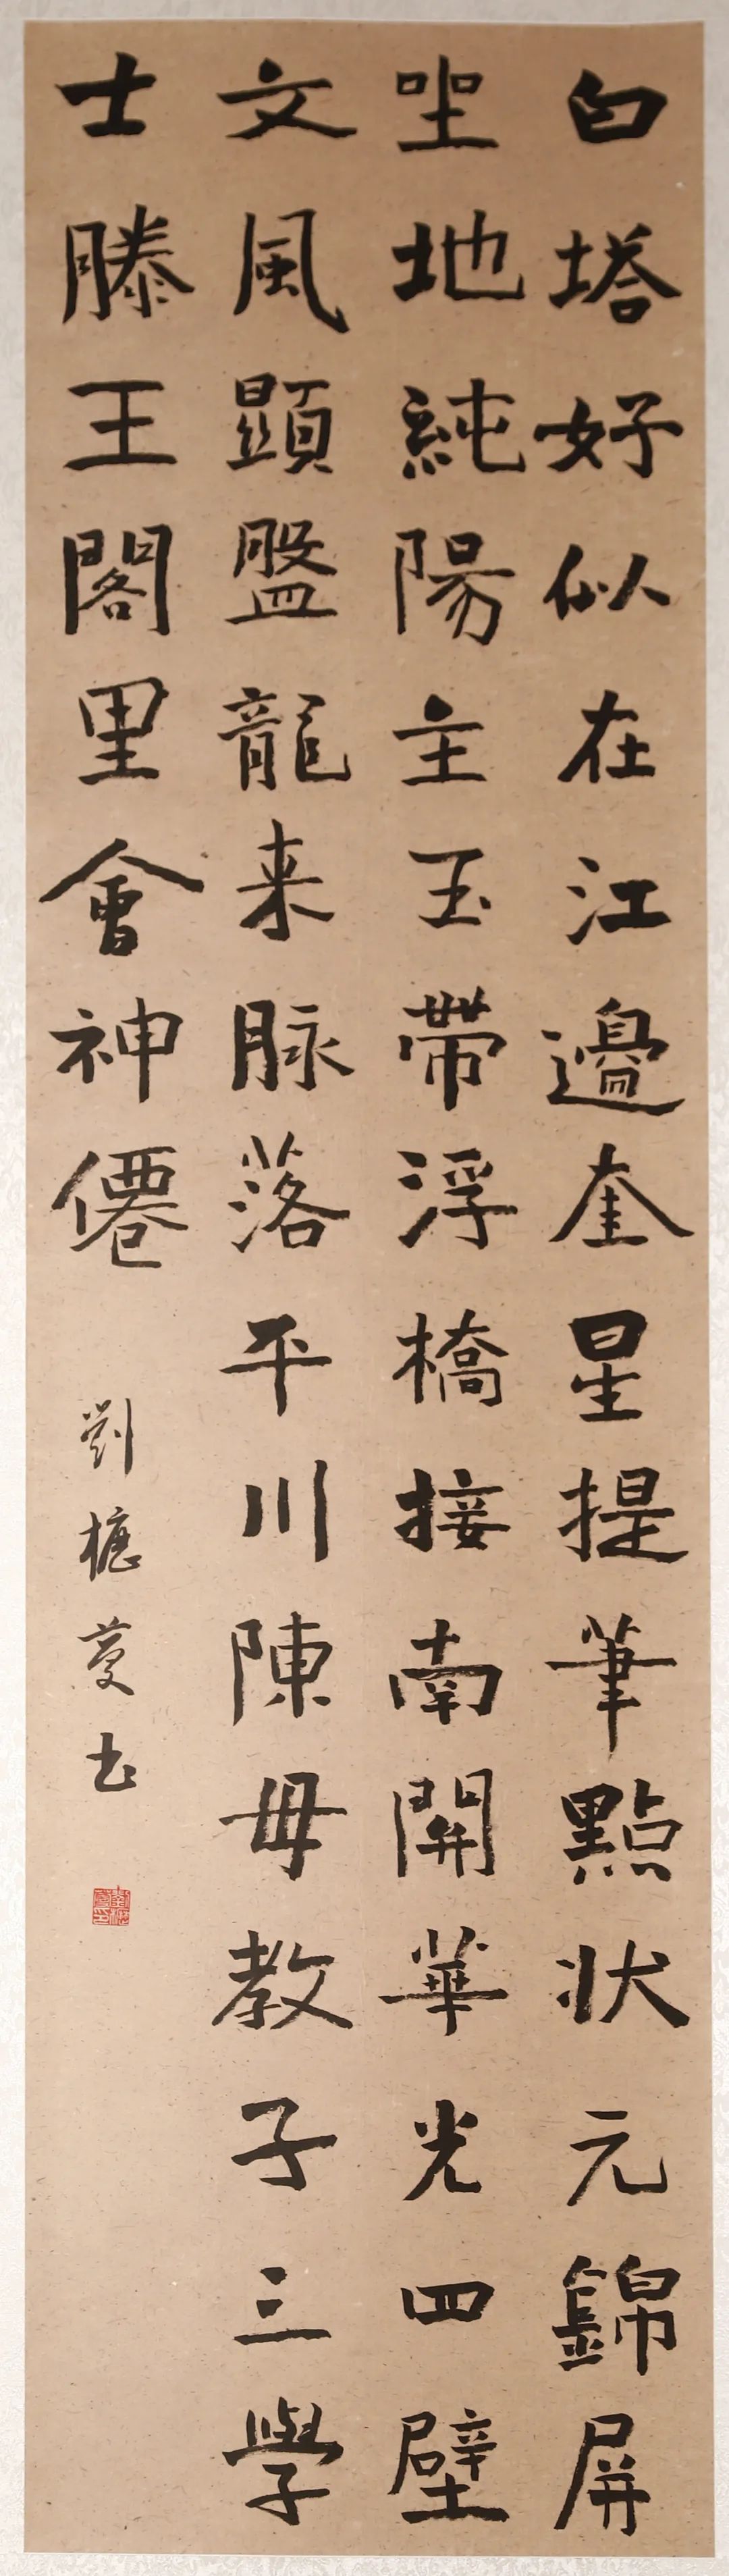 白塔好似在江邊奎星提筆點状元錦屏
坐地純陽主玉帶浮橋接南開華光四壁
文風顯盤龍来脉落平川陳母教子三學
士滕王閣里會神僊
劉